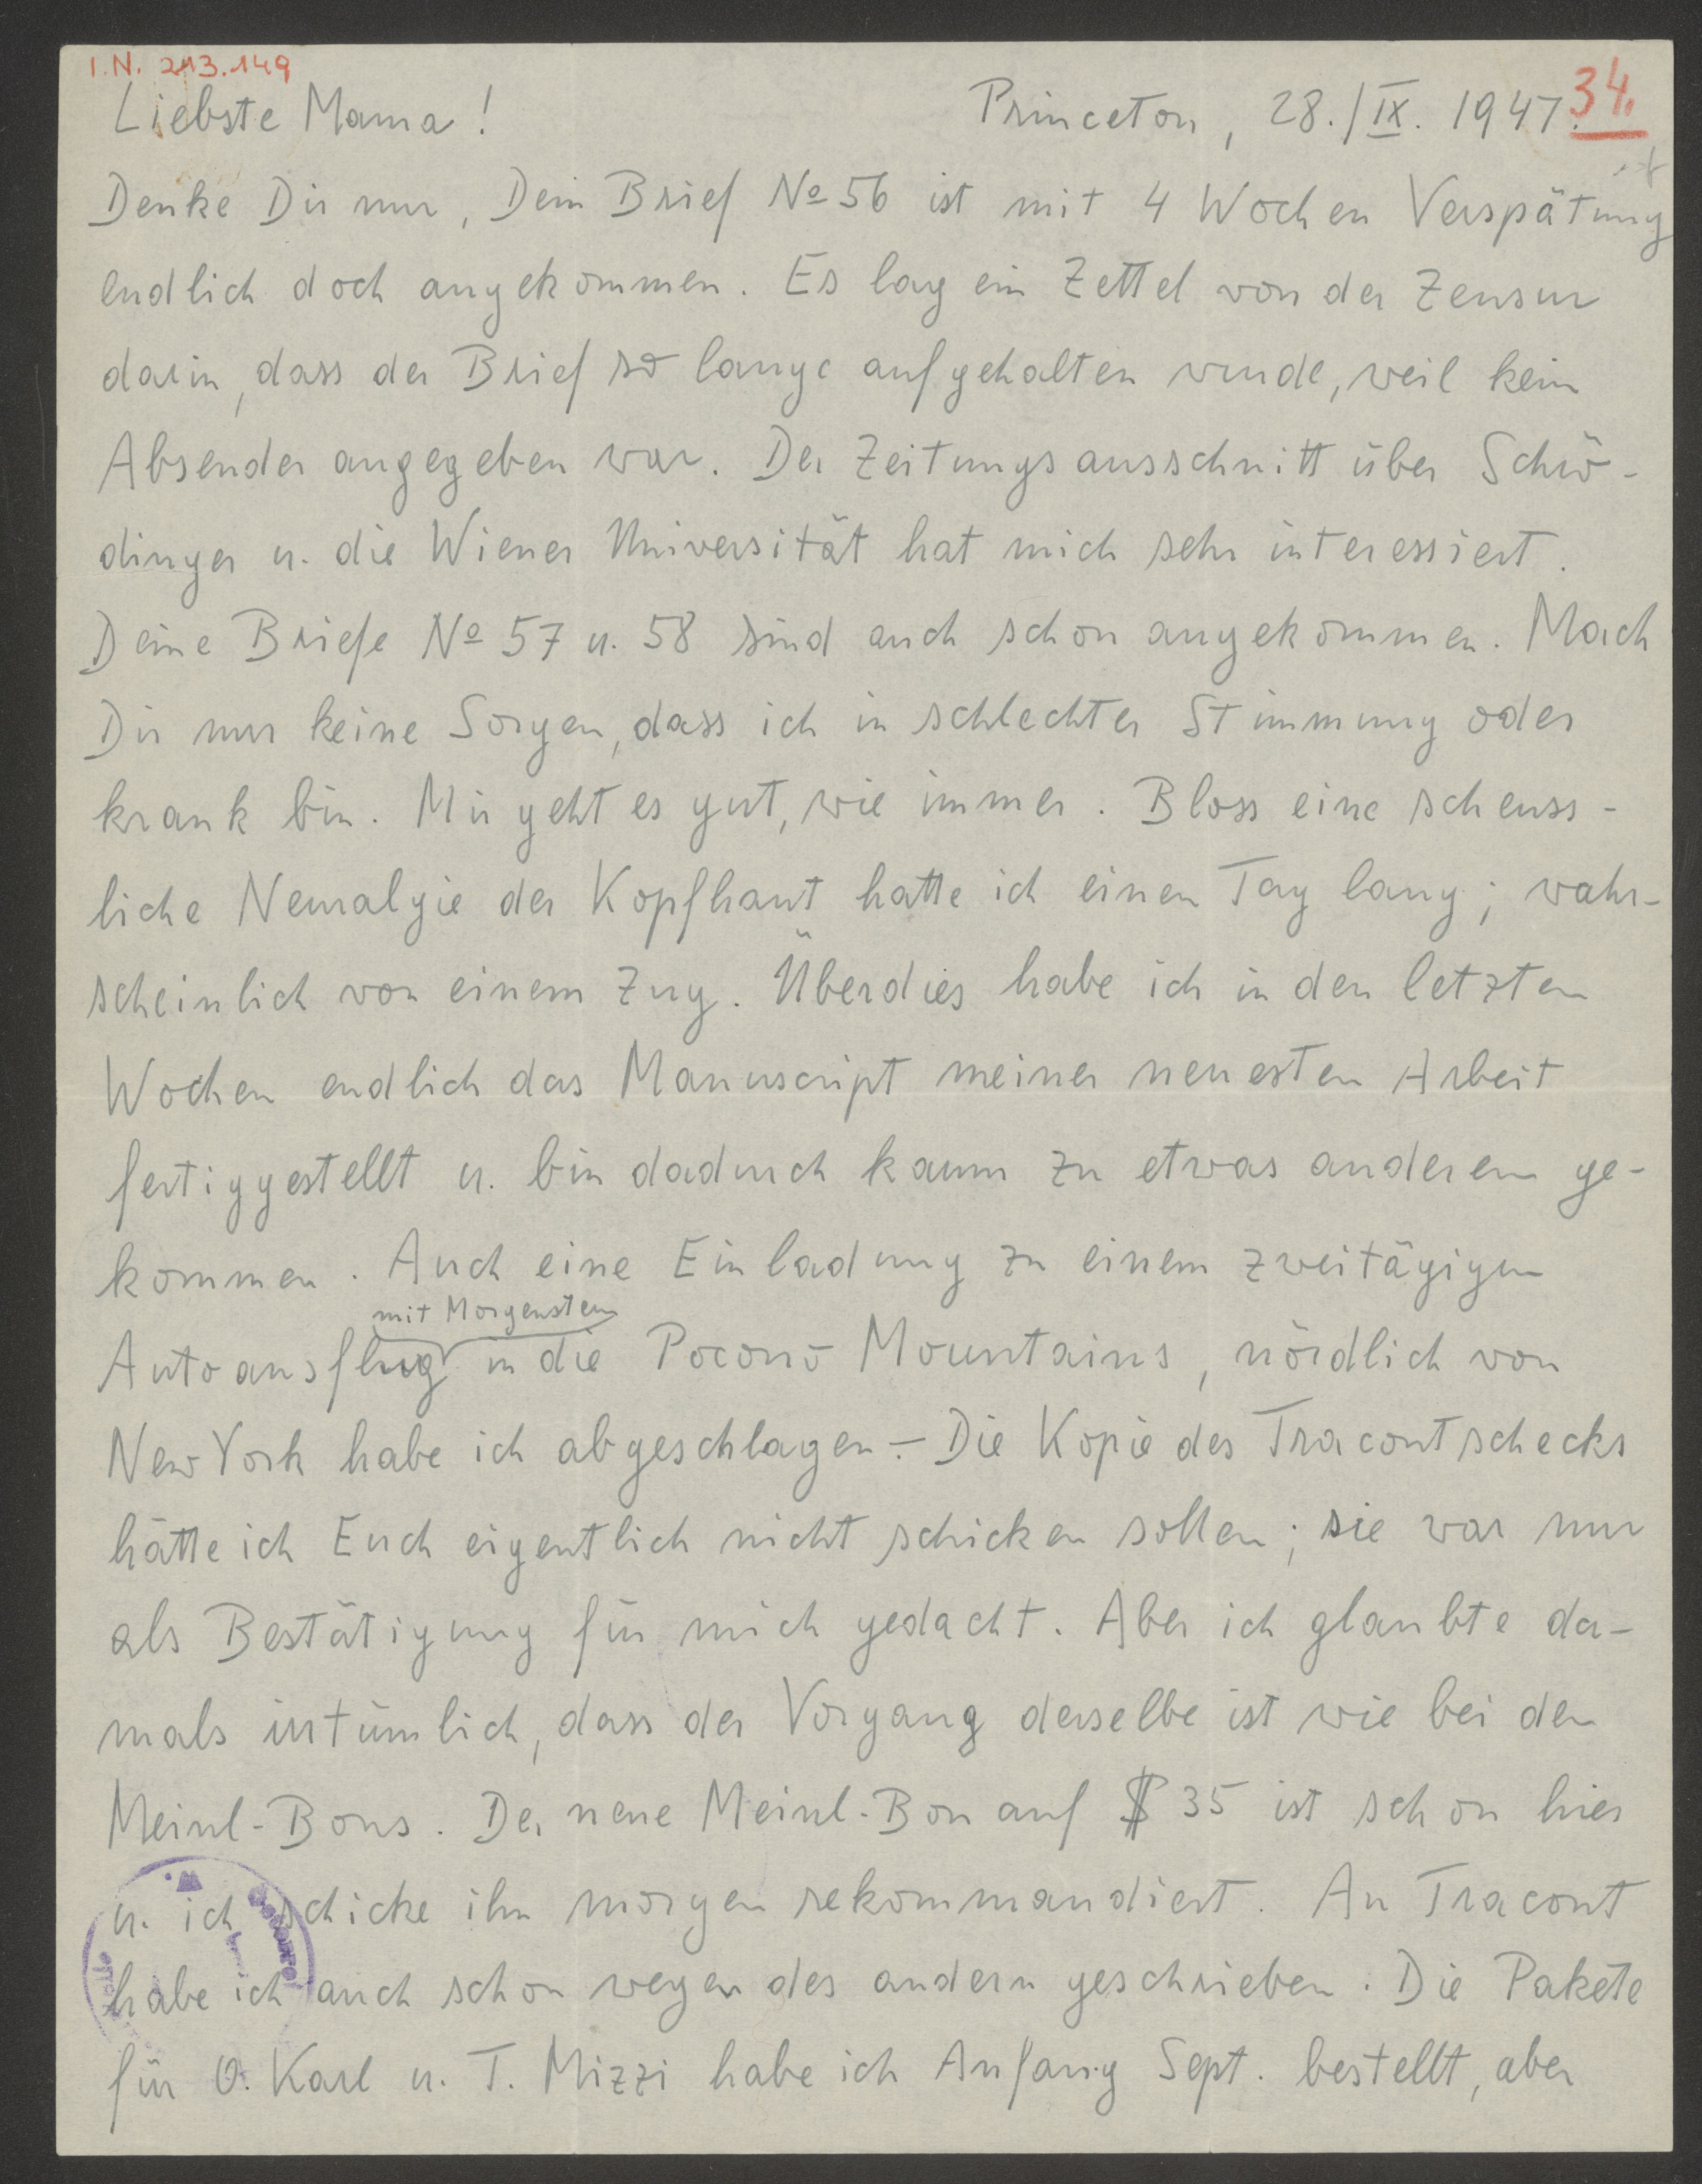 I.N. 213.149
34.
Liebste Mama! Princeton, 28./IX. 1947.
Denke Dir nur, Dein Brief No 56 ist mit 4 Wochen Verspätung
endlich doch angekommen. Es lag ein Zettel von der Zensur
darin, dass der Brief so lange aufgehalten wurde, weil kein
Absender angegeben war. Der Zeitungsausschnitt über Schrö-
dinger u. die Wiener Universität hat mich sehr interessiert.
Deine Briefe No 57 u. 58 sind auch schon angekommen. Mach
Dir nur keine Sorgen, dass ich in schlechter Stimmung oder
krank bin. Mir geht es gut, wie immer. Bloss eine scheuss-
liche Neuralgie der Kopfhaut hatte ich einen Tag lang; wahr-
scheinlich von einem Zug. Überdies habe ich in den letzten
Wochen endlich das Manuscript meiner neuesten Arbeit
fertiggestellt u. bin dadurch kaum zu etwas anderem ge-
kommen. Auch eine Einladung zu einem zweitägigen
mit Morgenstern
Autoausflug in die Pocono Mountains, nördlich von
New York habe ich abgeschlagen. – Die Kopie des Tracontschecks
hätte ich Euch eigentlich nicht schicken sollen; sie war nur
als Bestätigung für mich gedacht. Aber ich glaubte da-
mals irrtümlich, dass der Vorgang derselbe ist wie bei den
Meinl-Bons. Der neue Meinl-Bon auf $ 35 ist schon hier
u. ich schicke ihn morgen rekommandiert. An Tracont
habe ich auch schon wegen des andern geschrieben. Die Pakete
für O. Karl u. T. Mizzi habe ich Anfang Sept. bestellt, aber